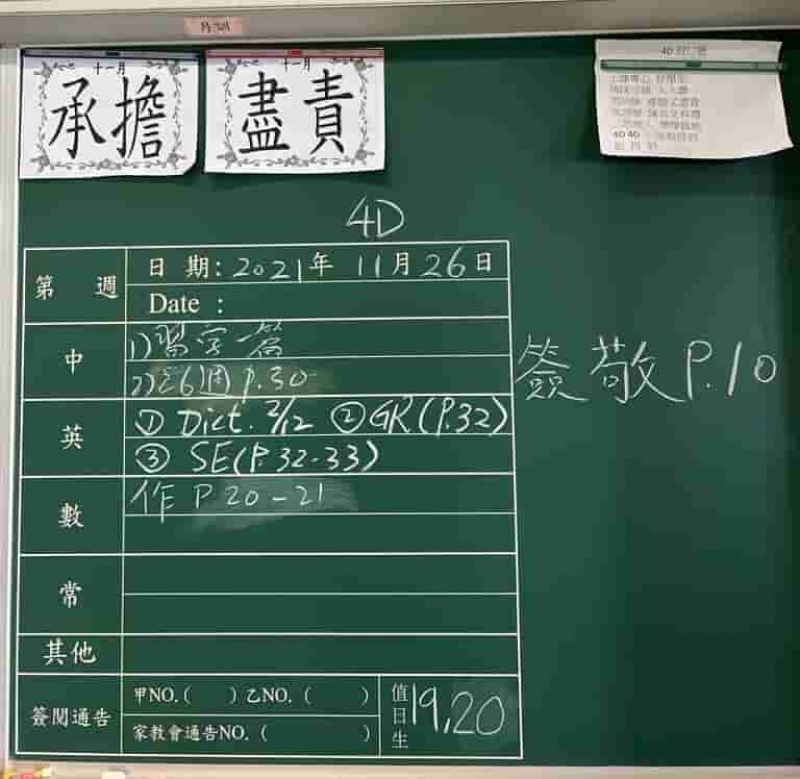 十一月
承擔
十一月
盡責
4D
第 週
日 期: 2021年 11月26日
Date :
中
1)習字一篇
2) 週P.30
英
① Dict. 2/12 ②GR(P.32)
③ SE(P.32-33)
數
作 P 20-21
常
其他
簽閱通告
甲NO.( ) 乙NO. ( )
家教會通告NO. ( )
值日生
19,20
簽 敬 P.10